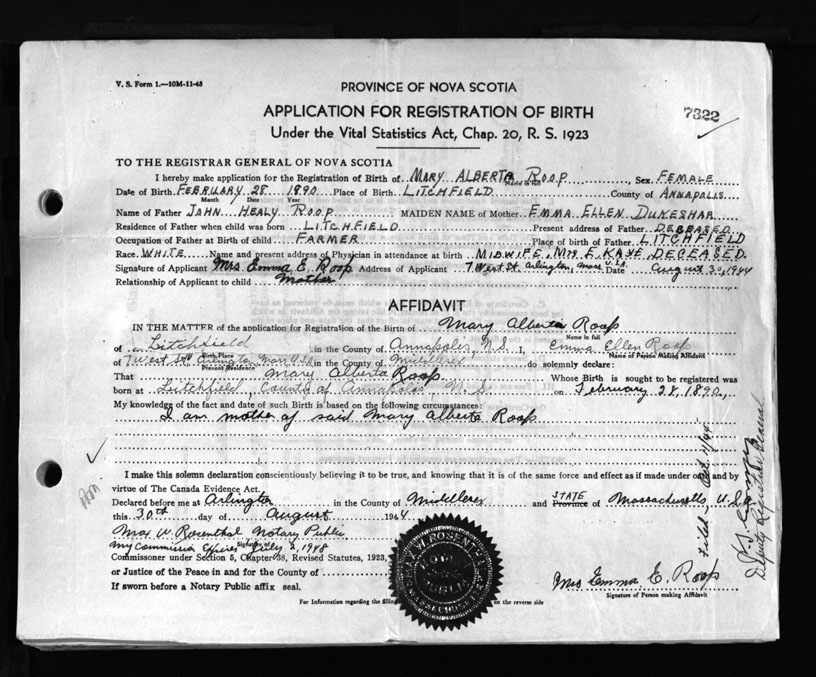 V. S. Form 1.—10M-11-43
PROVINCE OF NOVA SCOTIA
APPLICATION FOR REGISTRATION OF BIRTH
7322
Under the Vital Statistics Act, Chap. 20, R. S. 1923
TO THE REGISTRAR GENERAL OF NOVA SCOTIA
I hereby make application for the Registration of Birth of MARY ALBERTA ROOP Sex FEMALE
Name in full
Date of Birth FEBRUARY 28 1890 Place of Birth LITCHFIELD County of ANNAPOLIS
Month Date Year
Name of Father JOHN HEALY ROOP MAIDEN NAME of Mother EMMA ELLEN DUKESHAR
Residence of Father when child was born LITCHFIELD Present address of Father DECEASED
Occupation of Father at Birth of child FARMER Place of birth of Father LITCHFIELD
Race WHITE Name and present address of Physician in attendance at birth MIDWIFE, MRS E. KAYE, DECEASED.
Signature of Applicant Mrs Emma E. Roop Address of Applicant 7 West St. Arlington, Mass. U.S.A. Date August 30, 1944
Relationship of Applicant to child Mother
AFFIDAVIT
IN THE MATTER of the application for Registration of the Birth of Mary Alberta Roop
Name in full
of Litchfield in the County of Annapolis, N.S. I, Emma Ellen Roop
Birth Place Name of Person Making Affidavit
of 7 West St. Arlington, Mass U.S.A. in the County of Middlesex do solemnly declare:
Present Residence
That Mary Alberta Roop Whose Birth is sought to be registered was
born at Litchfield, County of Annapolis, N.S. on February 28, 1890.
My knowledge of the fact and date of such Birth is based on the following circumstances:
I am mother of said Mary Alberta Roop
I make this solemn declaration conscientiously believing it to be true, and knowing that it is of the same force and effect as if made under oath and by
virtue of The Canada Evidence Act.
Declared before me at Arlington in the County of Middlesex and STATE Province of Massachusetts U.S.A.
this 30th day of August 1944
Max W. Rosenthal Notary Public
My commission expires July 2, 1948
Commissioner under Section 5, Chapter 38, Revised Statutes, 1923,
or Justice of the Peace in and for the County of
If sworn before a Notary Public affix seal.
Mrs Emma E. Roop
Signature of Person making Affidavit
For Information regarding the filling on the reverse side
Filed - Oct. 11/44
Deputy Registrar General